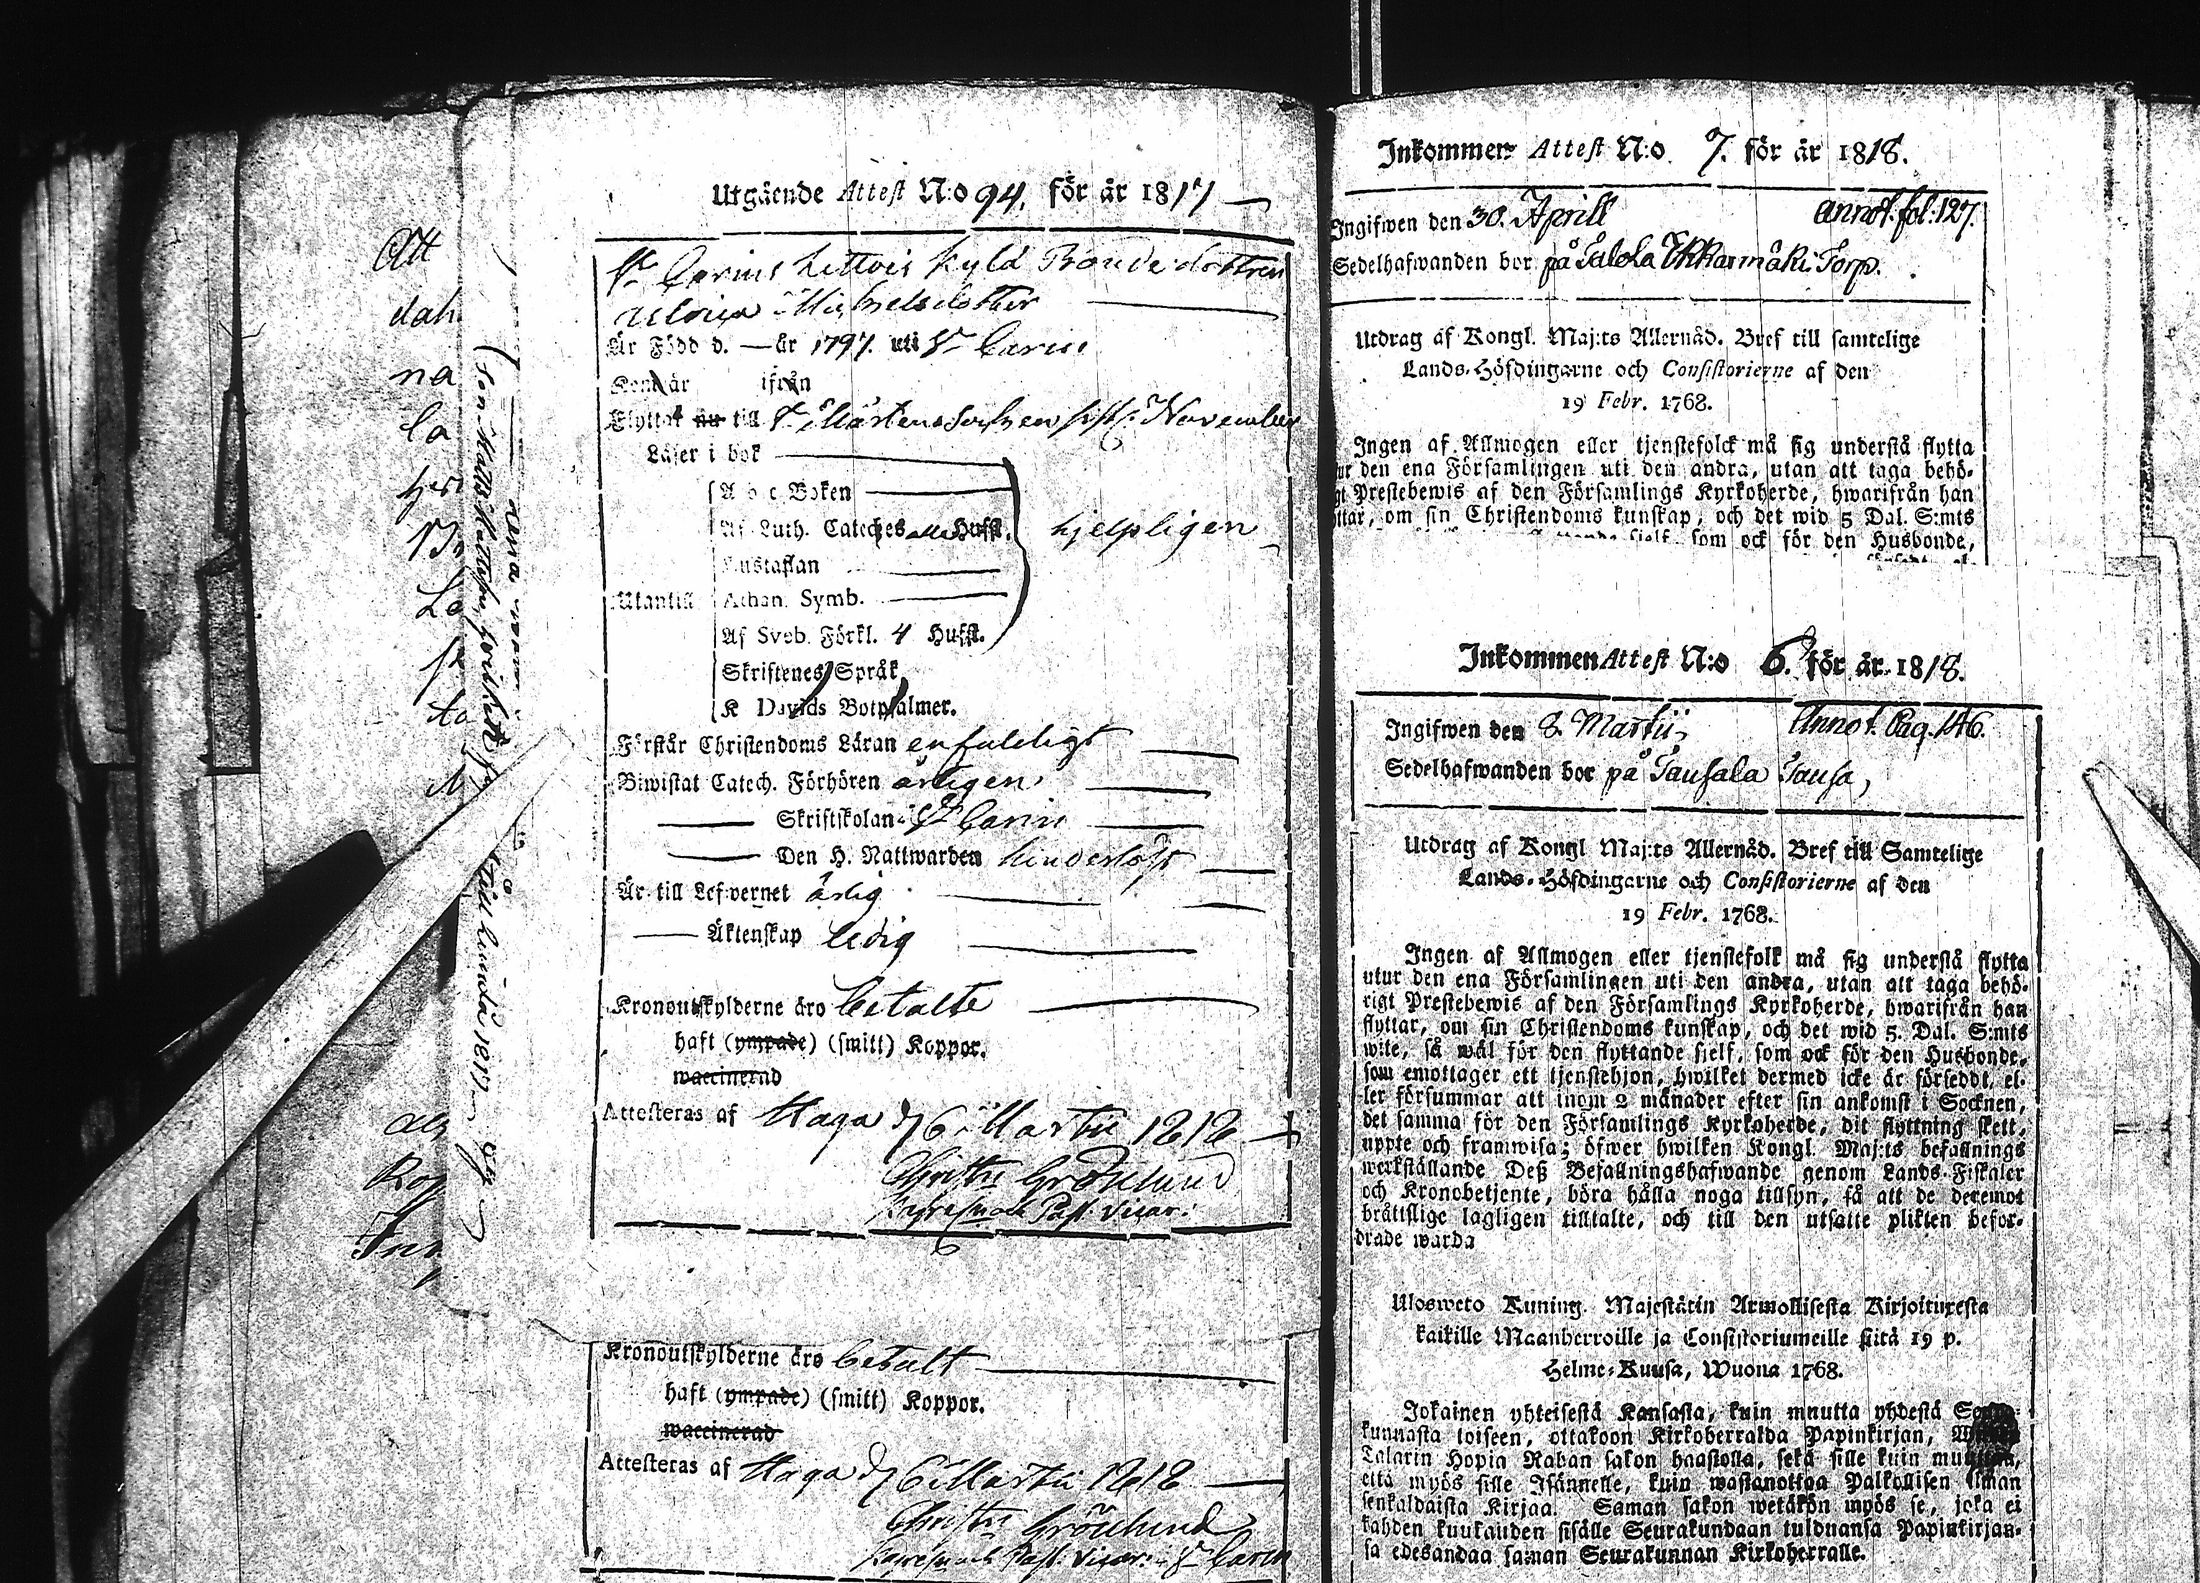 Utgående Attest N:o 94. för år 1817
St Carins Littois Kylä Bonde dottren
Ulrica Michelsdotter
Är Född d. — år 1797. uti St Carins
Kom är ifrån
Flyttat nu till St Mårtens Sochen sistl. November
Läser i bok
A b c Boken
Af Luth. Cateches alla Hufst.
hjelpligen
Hustaflan
Utantill Athan. Symb.
Af Sveb. Förkl. 4 Hufst.
Skriftenes Språk
K Davids Botpsalmer.
Förstår Christendoms Läran enfaldigt
Biwistat Catech. Förhören årligen
Skriftskolan i St Carins
Den H. Nattwarden hinderlöst
Är till Lefvernet ärlig
Äktenskap ledig
Kronoutskylderne äro betalte
haft (ympade) (smitt) Koppor.
waccinerad
Attesteras af Haga d 6 Martii 1818
Christer Grönlund
Past. Vicar:
Kronoutskylderne äro betalt
haft (ympade) (smitt) Koppor.
waccinerad
Attesteras af Haga d 6 Martii 1818
Christer Grönlund
Past. Vicar: i St Carin
Att
dah
na
Ca
på Lunda 1817
Inkommen Attest N:o 7. för år 1818.
Ingifwen den 30. Aprill annot. fol: 127.
Sedelhafwanden bor på Talola Ekkarmäki Torp.
Utdrag af Kongl. Maj:ts Allernåd. Bref till samtelige
Lands-Höfdingarne och Consistorierne af den
19 Febr. 1768.
Ingen af Allmogen eller tjenstefolck må sig understå flytta
ur den ena Församlingen uti den andra, utan att taga behö-
gt Prestebewis af den Församlings Kyrkoherde, hwarifrån han
ttar, om sin Christendoms kunskap, och det wid 5 Dal. S:mts
sjelf som ock för den Husbonde,
Inkommen Attest N:o 6. för år 1818.
Ingifwen den 8. Martii, Annot. Pag. 146.
Sedelhafwanden bor på Tausala Tausa,
Utdrag af Kongl Maj:ts Allernåd. Bref till Samtelige
Lands-Höfdingarne och Consistorierne af den
19 Febr. 1768.
Ingen af Allmogen eller tjenstefolk må sig understå flytta
utur den ena Församlingen uti den andra, utan att taga behö-
rigt Prestebewis af den Församlings Kyrkoherde, hwarifrån han
flyttar, om sin Christendoms kunskap, och det wid 5. Dal. S:mts
wite, så wäl för den flyttande sjelf, som ock för den Husbonde,
som emottager ett tjenstehjon, hwilket dermed icke är försedt, el-
ler försummar att inom 2 månader efter sin ankomst i Socknen,
det samma för den Församlings Kyrkoherde, dit flyttning skett,
uppte och framwisa; öfwer hwilken Kongl. Maj:ts befallnings
werkställande Deß Befallningshafwande genom Lands-Fiskaler
och Kronobetjente, böra hålla noga tillsyn, så att de deremot
bråttslige lagligen tilltalte, och till den utsatte plikten befor-
drade warda
Ulosweto Kuning. Majestätin Armollisesta Kirjoituxesta
kaikille Maanherroille ja Consistoriumeille siitä 19 p.
Helme-Kuusa, Wuona 1768.
Jokainen yhteisestä Kansasta, kuin muutta yhdestä
kunnasta toiseen, ottakoon Kirkoherralda Papinkirjan,
Talarin Hopia Rahan sakon haastolla, sekä sille kuin
että myös sille Isännelle, kuin wastanottaa Palkollisen ilman
senkaldaista Kirjaa. Saman sakon wetäkön myös se, joka ei
kahden kuukauden sisälle Seurakundaan tulduansa Papinkirjan-
sa edesandaa saman Seurakunnan Kirkoherralle.